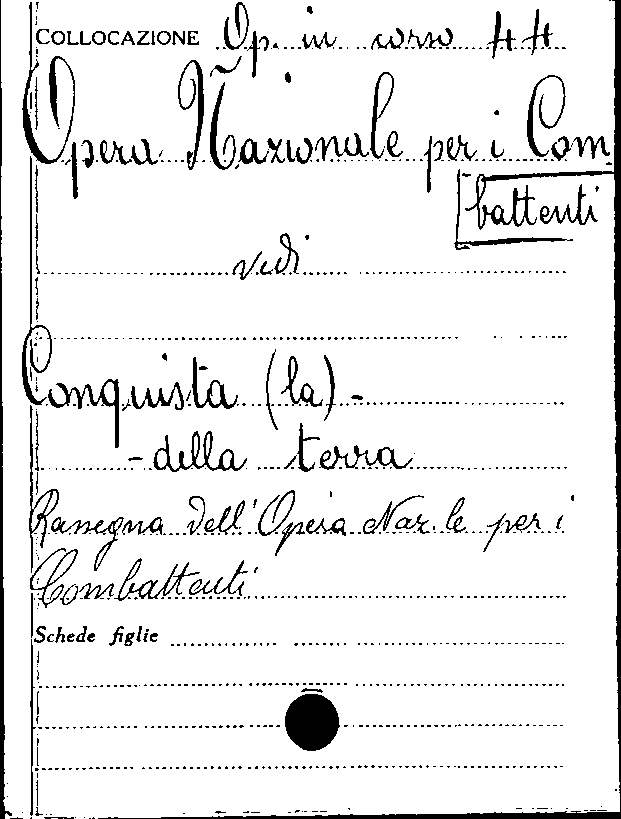 COLLOCAZIONE Op. in corso 44
Opera Nazionale per i Com
battenti
vedi
Conquista (la) -
- della terra
Rassegna dell'Opera Naz.le per i
Combattenti
Schede figlie